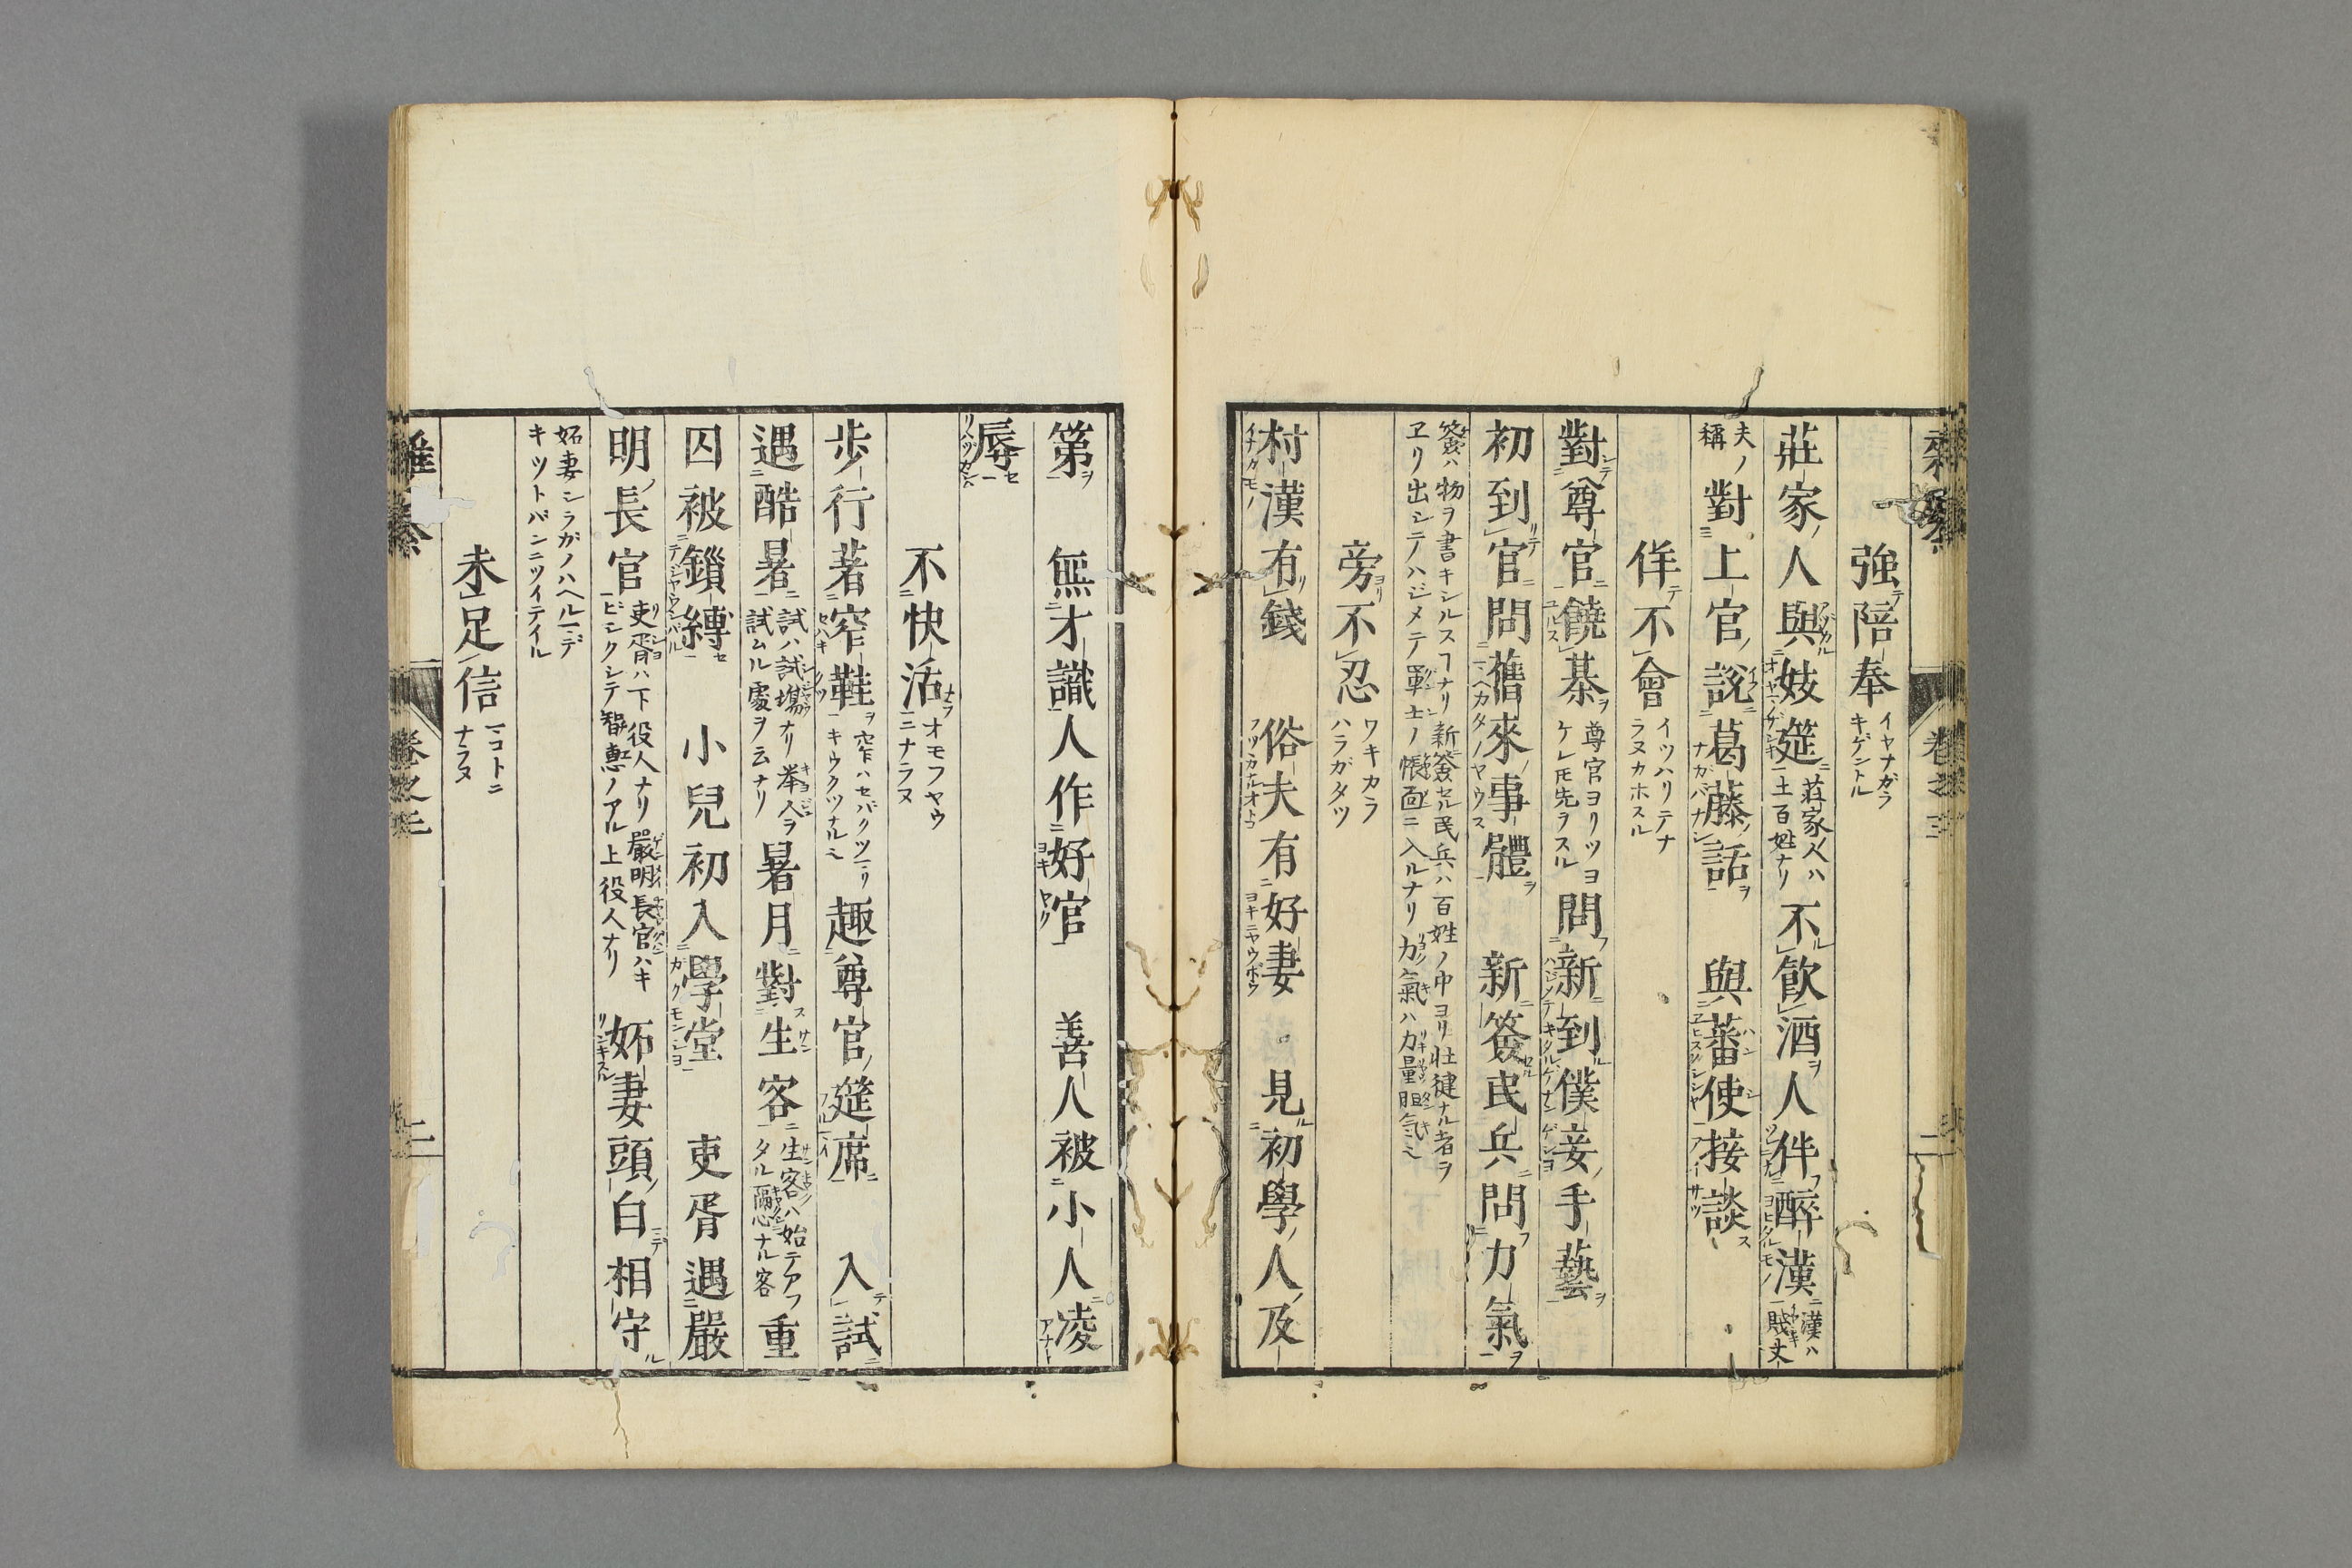 強陪奉 イヤナガラキゲントル
莊家人與妓筵 莊家人ハ土百姓ナリ 不飮酒人伴醉漢 漢ハ賎丈
夫ノ稱 對上官說葛藤話 與蕃使接談
佯不會 イツハリテナラヌカホスル
對尊官饒棊 尊官ヨリツヨケレ𪜈先ヲスル 問新到僕妾手藝
初到官問舊來事體 新簽民兵問力氣
簽ハ物ヲ書キシルスヿナリ新簽セル民兵ハ百姓ノ中ヨリ壮健ナル者ヲ
ヱリ出シテハジメテ軍士ノ帳面ニ入ルナリ力氣ハ力量胆氣也
旁不忍 ワキカラハラガタツ
村漢有錢 俗夫有好妻 見初學人及
第 無才識人作好官 善人被小人凌
辱
不快活 オモフヤウニナラヌ
步行著窄鞋 窄ハセバクツマリキウクツナル也 趣尊官筵席 入試
遇酷暑 試ハ試場ナリ挙人ヲ試ムル處ヲ云ナリ 暑月對生客 生客ハ始テアフタル隔心ナル客 重
囚被鎖縛 小兒初入學堂 吏胥遇嚴
明長官 吏胥ハ下役人ナリ嚴明長官ハキビシクシテ智惠ノアル上役人ナリ 妬妻頭白相守
妬妻シラガノハヘルマデ
キツトバンニツイテイル
未足信 マコトニナラヌ
雜纂 卷之三 二